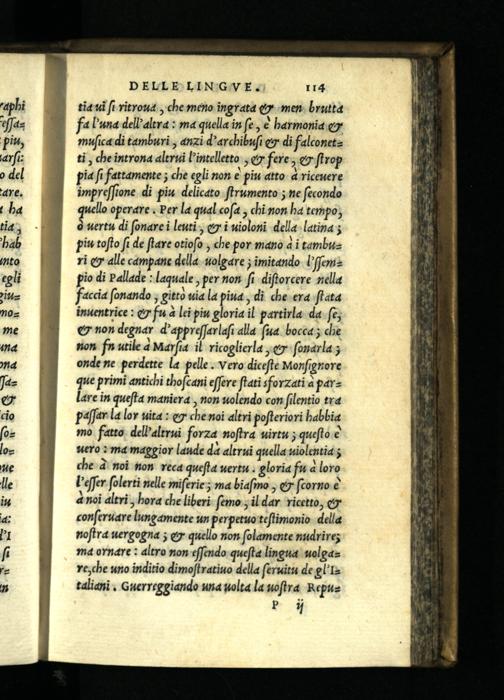 DELLE LINGVE. 114
tia ui si ritroua, che meno ingrata & men brutta
fa l'una dell'altra: ma quella in se, è harmonia &
musica di tamburi, anzi d'archibusi & di falconet=
ti, che introna altrui l'intelletto, & fere, & strop
pia si fattamente; che egli non è piu atto à riceuere
impressione di piu delicato strumento; ne secondo
quello operare. Per la qual cosa, chi non ha tempo,
ò uertu di sonare i leuti, & i uioloni della latina;
piu tosto si de stare otioso, che por mano à i tambu=
ri & alle campane della uolgare; imitando l'essem=
pio di Pallade: laquale, per non si distorcere nella
faccia sonando, gittò uia la piua, di che era stata
inuentrice: & fu à lei piu gloria il partirla da se,
& non degnar d'appressarlasi alla sua bocca; che
non fn utile à Marsia il ricoglierla, & sonarla;
onde ne perdette la pelle. Vero diceste Monsignore
que primi antichi thoscani essere stati sforzati à par=
lare in questa maniera, non uolendo con silentio tra
passar la lor uita: & che noi altri posteriori habbia
mo fatto dell'altrui forza nostra uirtu; questo è
uero: ma maggior laude dà altrui quella uiolentia;
che à noi non reca questa uertu. gloria fu à loro
l'esser solerti nelle miserie; ma biasmo, & scorno è
à noi altri, hora che liberi semo, il dar ricetto, &
conseruare lungamente un perpetuo testimonio della
nostra uergogna; & quello non solamente nudrire;
ma ornare: altro non essendo questa lingua uolga=
re, che uno inditio dimostratiuo della seruitu de gl'I=
taliani. Guerreggiando una uolta la uostra Repu=
P ij